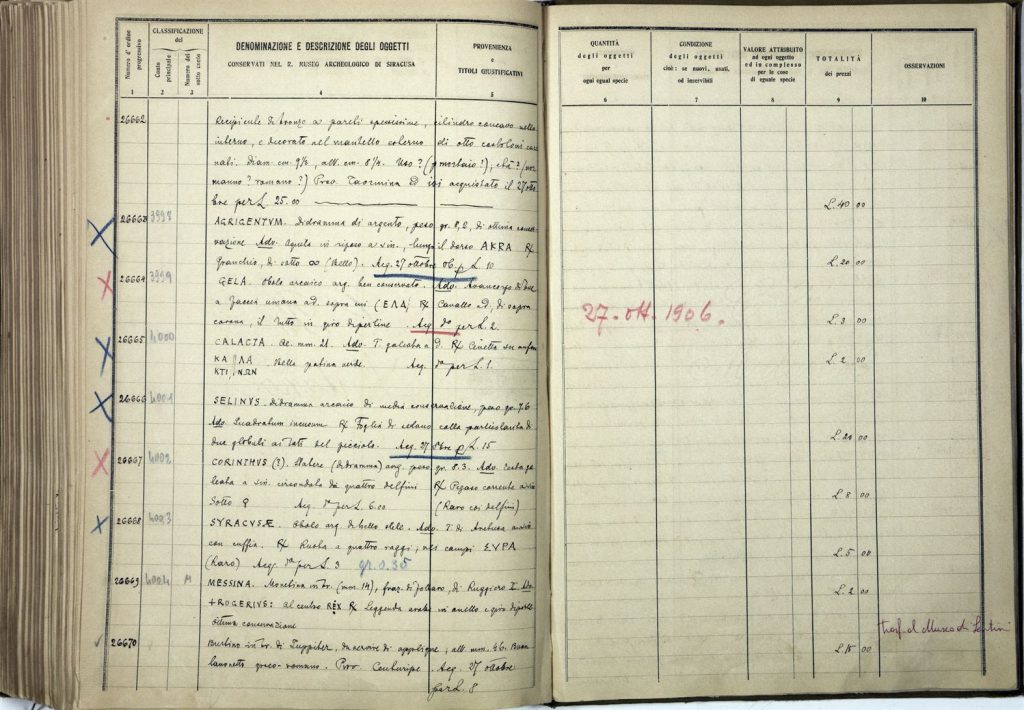 Numero d'ordine progressivo
CLASSIFICAZIONE del
Conto principale
Numero del sotto conto
DENOMINAZIONE E DESCRIZIONE DEGLI OGGETTI
CONSERVATI NEL R. MUSEO ARCHEOLOGICO DI SIRACUSA
PROVENIENZA
e
TITOLI GIUSTIFICATIVI
1 2 3 4 5
26662
di bronzo a pareti spessissime, cilindro concavo nello
interno, e decorato nel mantello esterno di otto
nali. Diam. cm. 9½, alt. cm. 8¼. Uso? (mortaio?), età? (nor
manno? romano?) Prov. Taormina ed ivi acquistato il 27 otto
bre per L. 25.00
26663 3998 AGRIGENTVM. Didramma di argento, peso gr. 8,2, di ottima conser
vazione Adv. Aquila in riposo a sin., lungo il dorso AKRA R/
Granchio, di sotto ∞ (Bello). Acq. 27 ottobre 06 p L. 10
26664 3999 GELA. Obolo arcaico arg. ben conservato. Adv. Avancorpo di bue
a faccia umana ad. sopra CΕΛΑ; R/ Cavallo a D, di sopra
corona, il tutto in giro di perline. Acq. do per L. 2.
26665 4000 CALACTA. Ae. mm. 21. Adv. T. galeata a D. R/ Civetta su anfora
ΚΑ ΛΑ
ΚΤΙ ΝΩΝ Bella patina verde. Acq. do per L. 1.
26666 4001 SELINVS. Didramma arcaico di media conservazione, peso gr. 7.6
Adv. Quadratum incusum R/ Foglia di sedano colla particolarità di
due globuli ai lati del picciolo. Acq. 27 8bre p L. 15
26667 4002 CORINTHVS (?). Statere (didramma) arg. peso gr. 8.3. Adv. Testa ga
leata a sin. circondata da quattro delfini R/ Pegaso corrente a sin
Sotto Ϙ Acq. do per L. 6.00 (Raro coi delfini)
26668 4003 SYRACVSÆ. Obolo arg. di bello stile. Adv. T. di Aretusa a sin
con cuffia. R/ Ruota a quattro raggi; nei campi ΣΥΡΑ
(Raro) Acq. do per L. 3 gr. 0.35
26669 4004 M MESSINA. Monetina in br. (mm. 14), fraz. di follaro, di Ruggiero I Adv.
+ROGERIVS: al centro REX R/ Leggenda araba in anello e giro di perline
ottima conservazione
26670 Bustino in br. di Juppiter, da servire di applique; alt. mm. 46. Buon
lavoretto greco-romano. Prov. Centuripe. Acq. 27 ottobre
per L. 8
QUANTITÀ
degli oggetti
per
ogni egual specie
CONDIZIONE
degli oggetti
cioè: se nuovi, usati,
od inservibili
VALORE ATTRIBUITO
ad ogni oggetto
ed in complesso
per le cose
di eguale specie
TOTALITÀ
dei prezzi
OSSERVAZIONI
6 7 8 9 10
L. 40 00
L. 20 00
27. ott. 1906.
L. 3 00
L. 2 00
L. 20 00
L. 8 00
L. 5 00
L. 2 00
trasf. al Museo di Lentini
L. 15 00